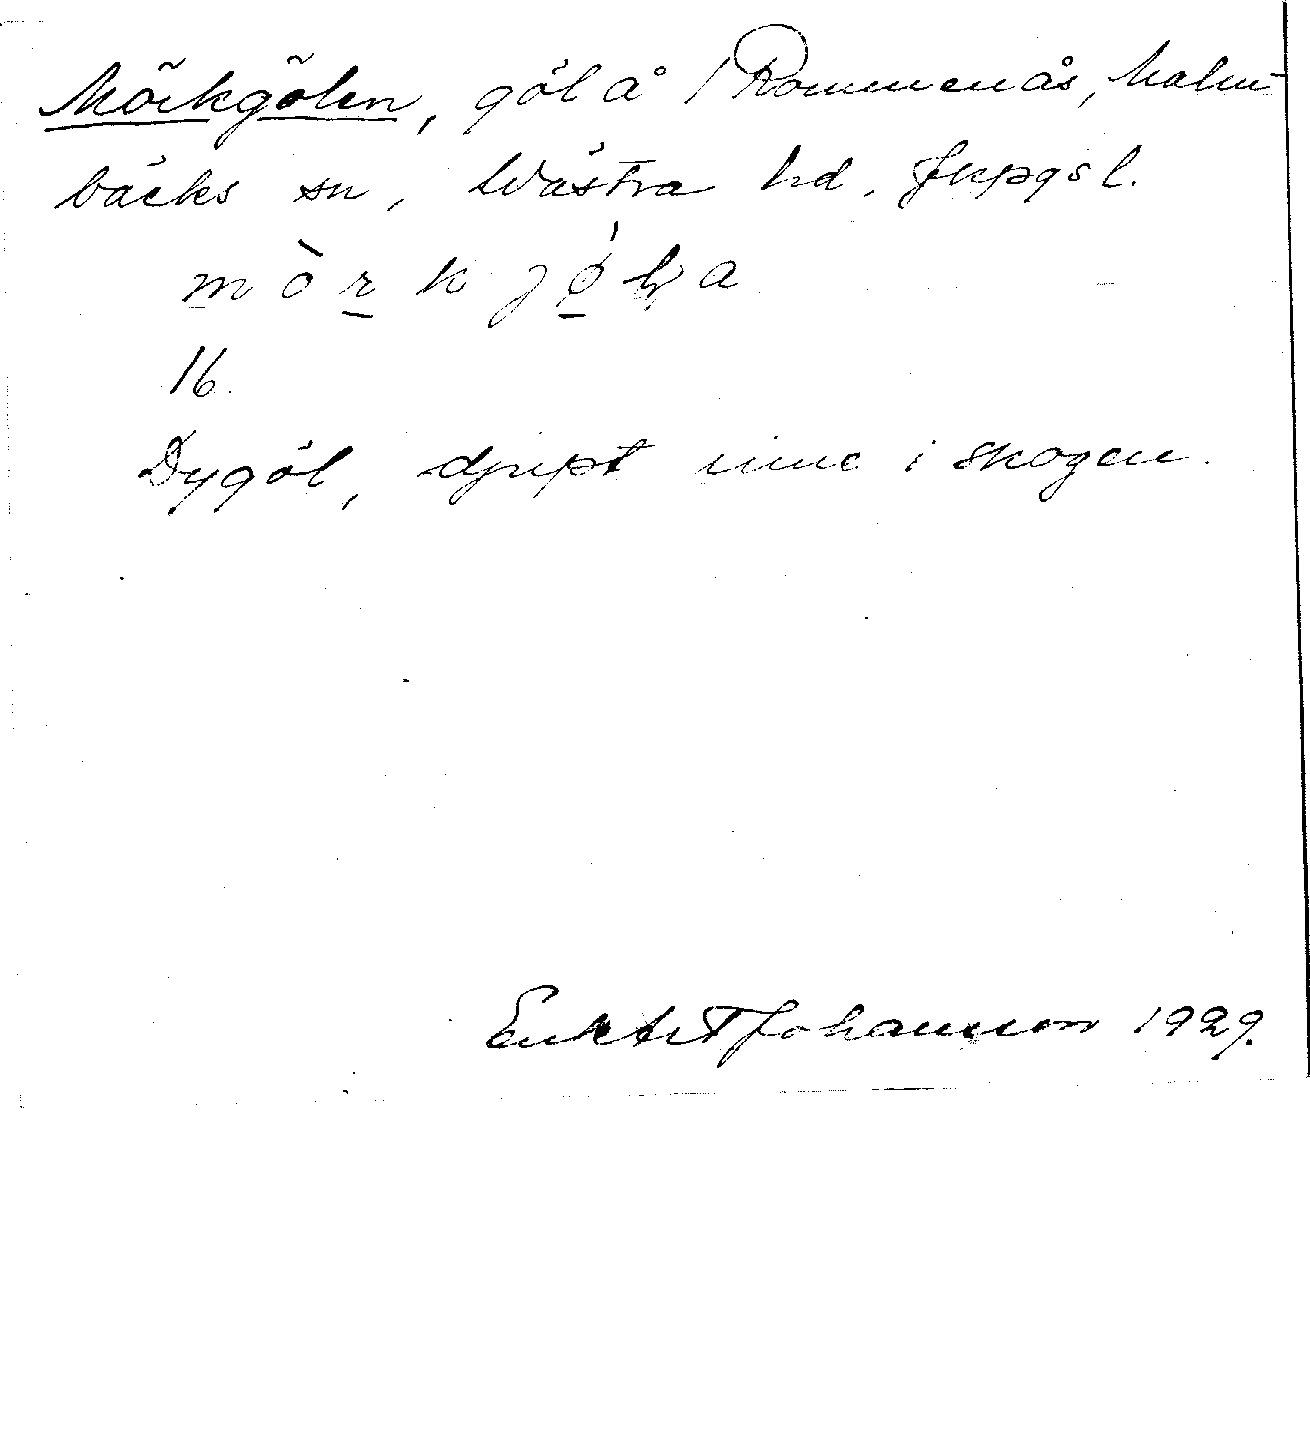 Mörkgölen, göl å Rommenås, Malm-
bäcks sn, Wästra hd, Jkpgs l.
16.
Dygöl, djupt inne i skogen.
Johansson 1929.